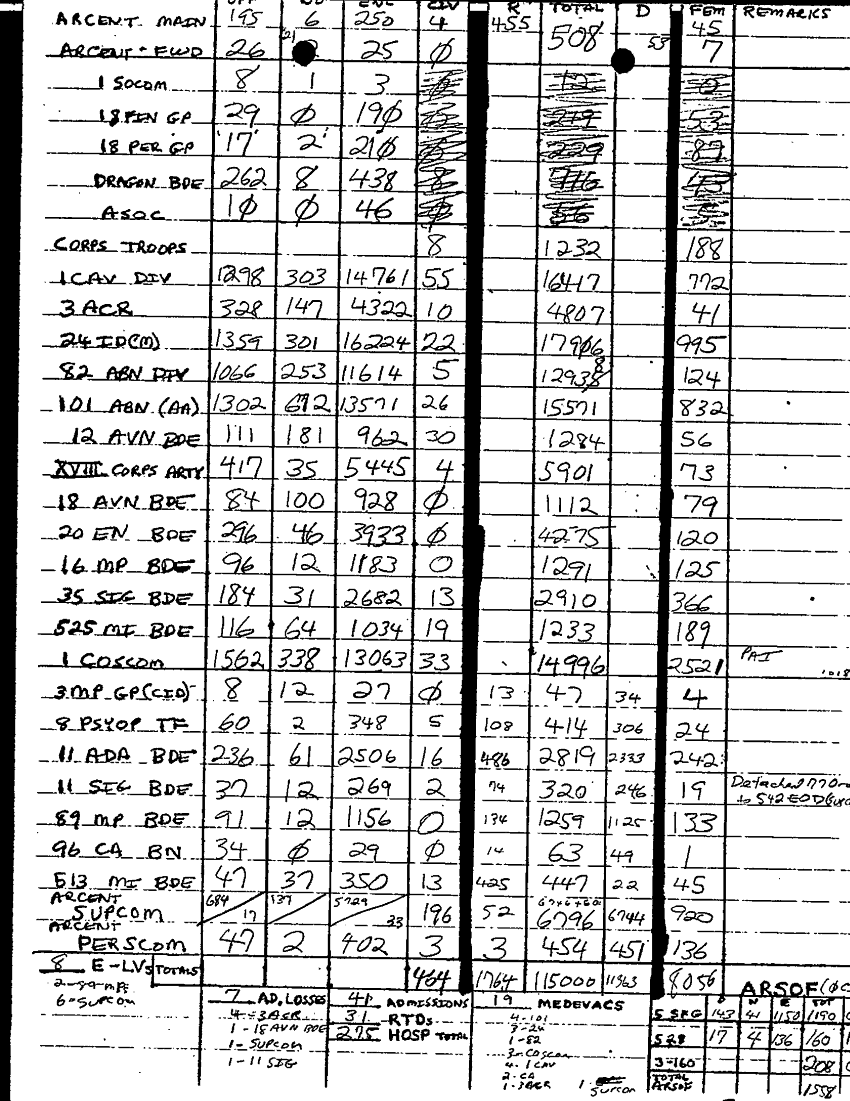 CIV R TOTAL D FEM REMARKS
ARCENT MAIN 195 6 250 4 455 508 45
ARCENT-FWD 26 21 25 φ 53 7
1 SOCOM 8 1 3
18 FIN GP 29 φ 19φ 219 53
18 PER GP 17 2 21φ 229 87
DRAGON BDE 262 8 438 8
ASOC 1φ φ 46 φ 56 5
CORPS TROOPS 8 1232 188
1 CAV DIV 1298 303 14761 55 16417 772
3 ACR 328 147 4322 10 4807 41
24 ID(M) 1359 301 16224 22 17906 995
82 ABN DIV 1066 253 11614 5 12938 124
101 ABN (AA) 1302 672 13571 26 15571 832
12 AVN BDE 111 181 962 30 1284 56
XVIII CORPS ARTY 417 35 5445 4 5901 73
18 AVN BDE 84 100 928 φ 1112 79
20 EN BDE 296 46 3933 φ 4275 120
16 MP BDE 96 12 1183 0 1291 125
35 SIG BDE 184 31 2682 13 2910 366
525 MI BDE 116 64 1034 19 1233 189
1 COSCOM 1562 338 13063 33 14996 2521 PAI
3 MP GP(CID) 8 12 27 φ 13 47 34 4
8 PSYOP TF 60 2 348 5 108 414 306 24
11 ADA BDE 236 61 2506 16 486 2819 2333 242
11 SIG BDE 37 12 269 2 74 320 246 19 Detached 770
to 542 EOD
89 MP BDE 91 12 1156 0 134 1259 1125 133
96 CA BN 34 φ 29 φ 14 63 49 1
513 MI BDE 47 37 350 13 425 447 22 45
ARCENT 684 137 5729
SUPCOM 17 33 196 52 6796 6744 920
ARCENT
PERSCOM 47 2 402 3 3 454 451 136
8 E-LVs TOTALS 464 1764 115000 11363 8056
2-89 MP
6-SUPCOM
7 AD. LOSSES 41 ADMISSIONS 19 MEDEVACS ARSOF
4-3 ACR 31 RTDs 4-101
1-18 AVN BDE 275 HOSP TOTAL 3-24
1-SUPCOM 1-82
1-11 SIG 3-COSCOM
4-1 CAV
2-CA
1-3 ACR 1 SUPCOM
O N E TOT
5 SFG 143 41 1150 1190
528 17 4 136 160
3-160 208
TOTAL
ARSOF 1558